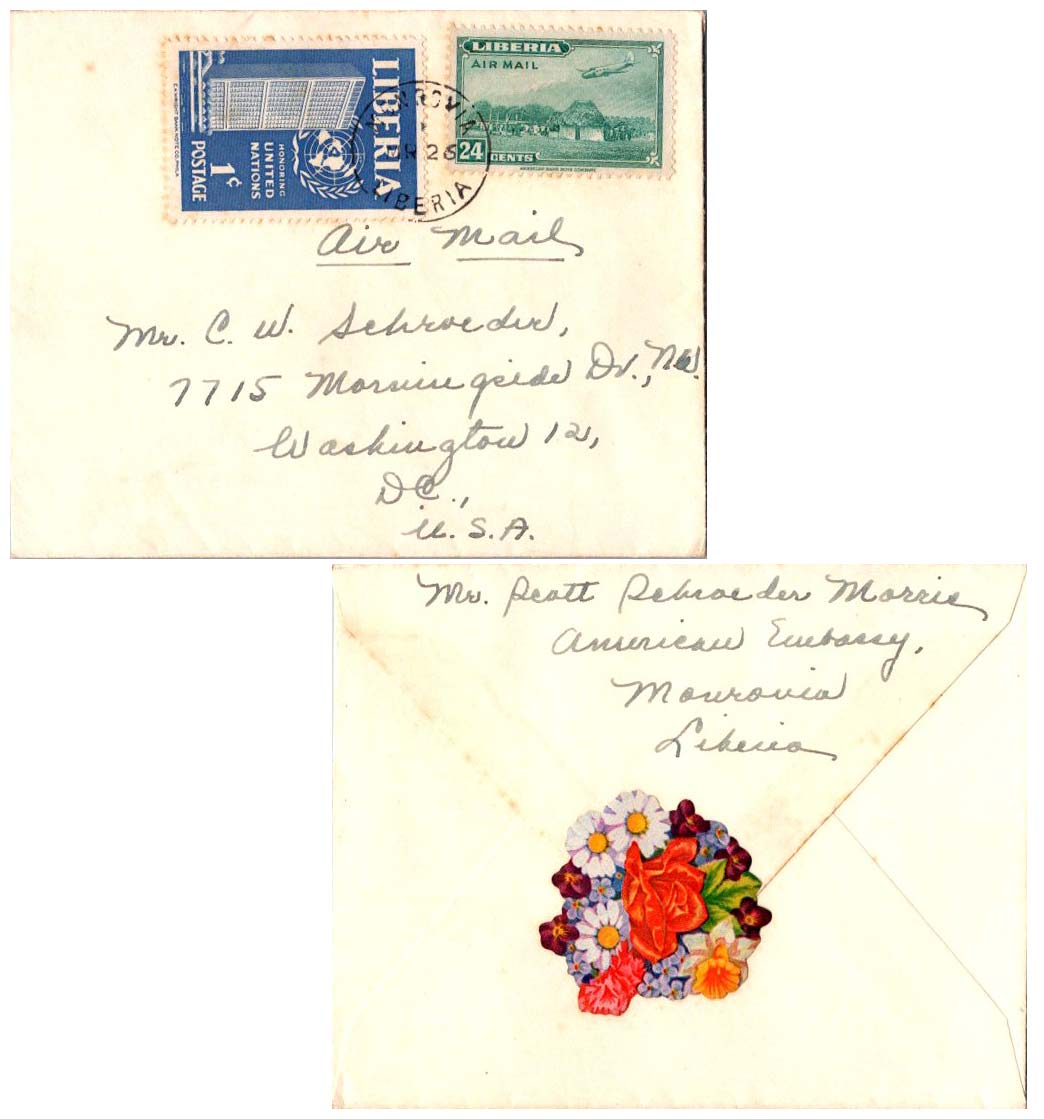 LIBERIA
HONORING
UNITED
NATIONS
1¢
POSTAGE
LIBERIA
AIR MAIL
24 CENTS
AMERICAN BANK NOTE COMPANY
MONROVIA
26
LIBERIA
Air Mail
Mr. C. W. Schroeder,
7715 Morningside Dr., NW.
Washington 12,
DC.,
U.S.A.
Mr. Scott Schroeder Morris
American Embassy,
Monrovia
Liberia